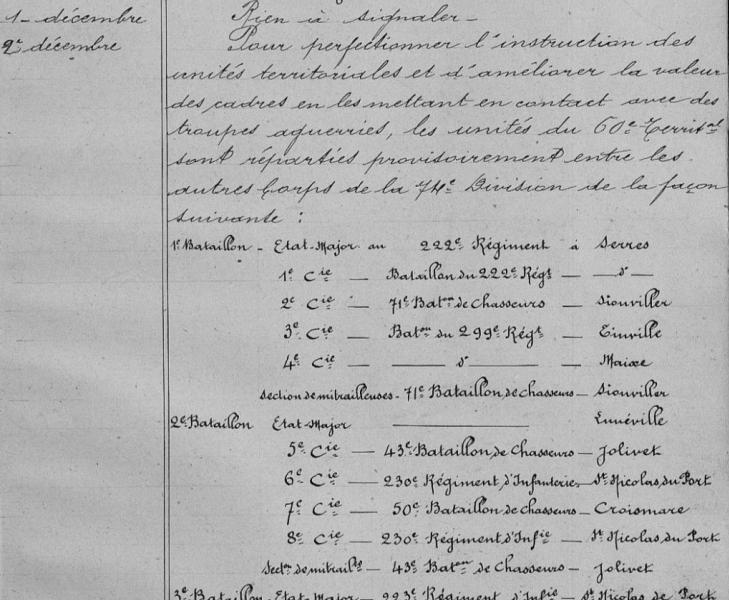 1- décembre Rien à signaler -
2e décembre Pour perfectionner l'instruction des
unités territoriales et d'améliorer la valeur
des cadres en les mettant en contact avec des
troupes aguerries, les unités du 60e Territal
sont réparties provisoirement entre les
autres Corps de la 74e Division de la façon
suivante :
1e Bataillon - Etat-Major au 222e Régiment à Serres
1e Cie — Bataillon du 222e Régt — do —
2e Cie — 71e Baton de Chasseurs — Sionviller
3e Cie — Baton du 299e Régt — Einville
4e Cie — do — Maixe
Section de mitrailleuses - 71e Bataillon de chasseurs — Sionviller
2e Bataillon Etat-Major — Lunéville
5e Cie — 43e Bataillon de Chasseurs — Jolivet
6e Cie — 230e Régiment d'Infanterie — St Nicolas du Port
7e Cie — 50e Bataillon de chasseurs — Croismare
8e Cie — 230e Régiment d'Infie — St Nicolas du Port
Secton de mitraills — 43e Baton de Chasseurs — Jolivet
3e Bataillon - Etat-Major — 223e Régiment d'Infie — St Nicolas de Port